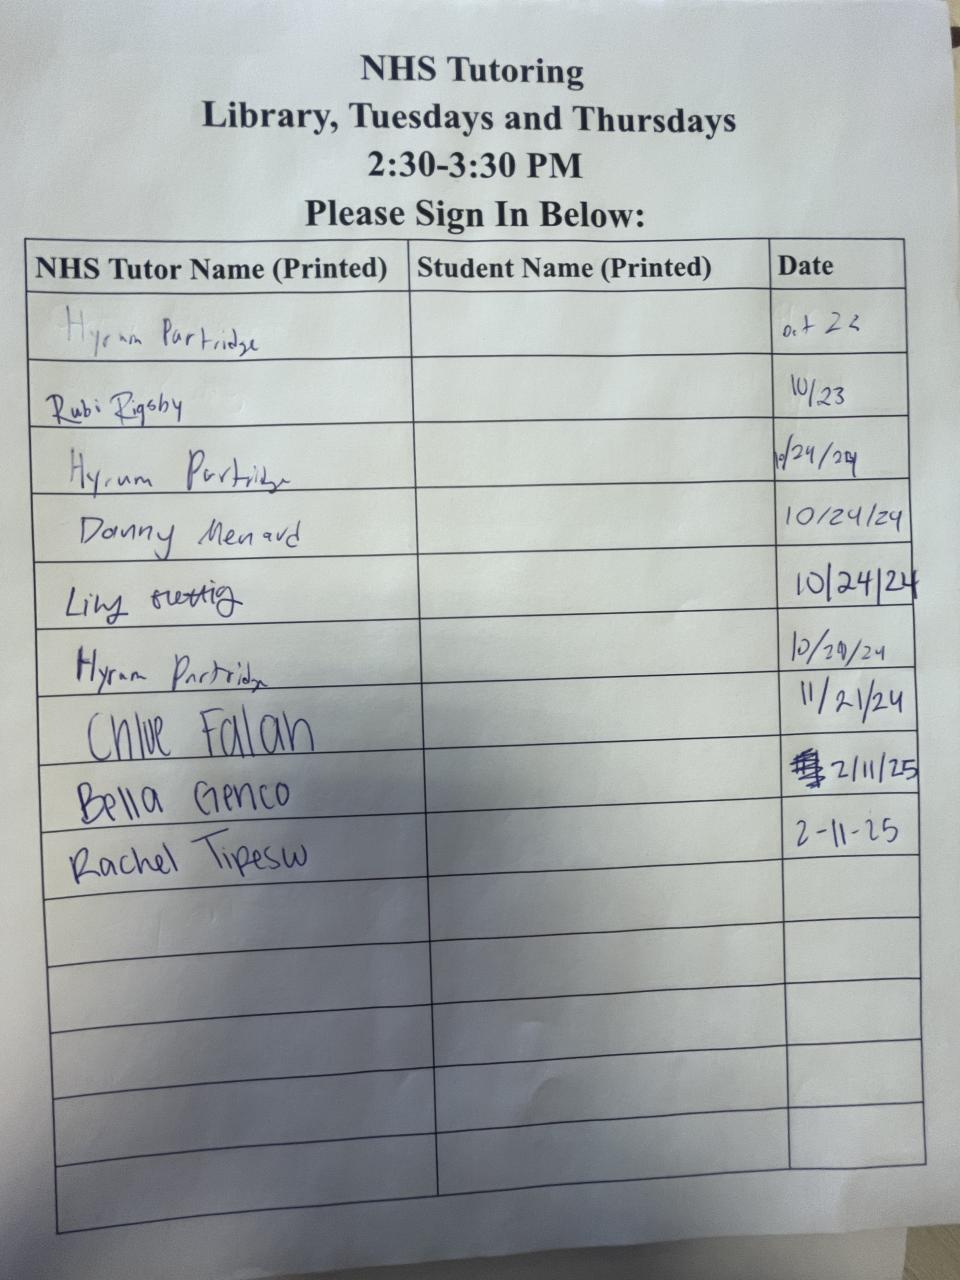 NHS Tutoring
Library, Tuesdays and Thursdays
2:30-3:30 PM
Please Sign In Below:
NHS Tutor Name (Printed) Student Name (Printed) Date
Hyrum Partridge Oct 22
Rubi Rigsby 10/23
Hyrum Partridge 10/24/24
Danny Menard 10/24/24
10/24/24
Hyrum Partridge 10/29/24
Chloe Falah 11/21/24
Bella Genco 2/11/25
Rachel Tipesw 2-11-25